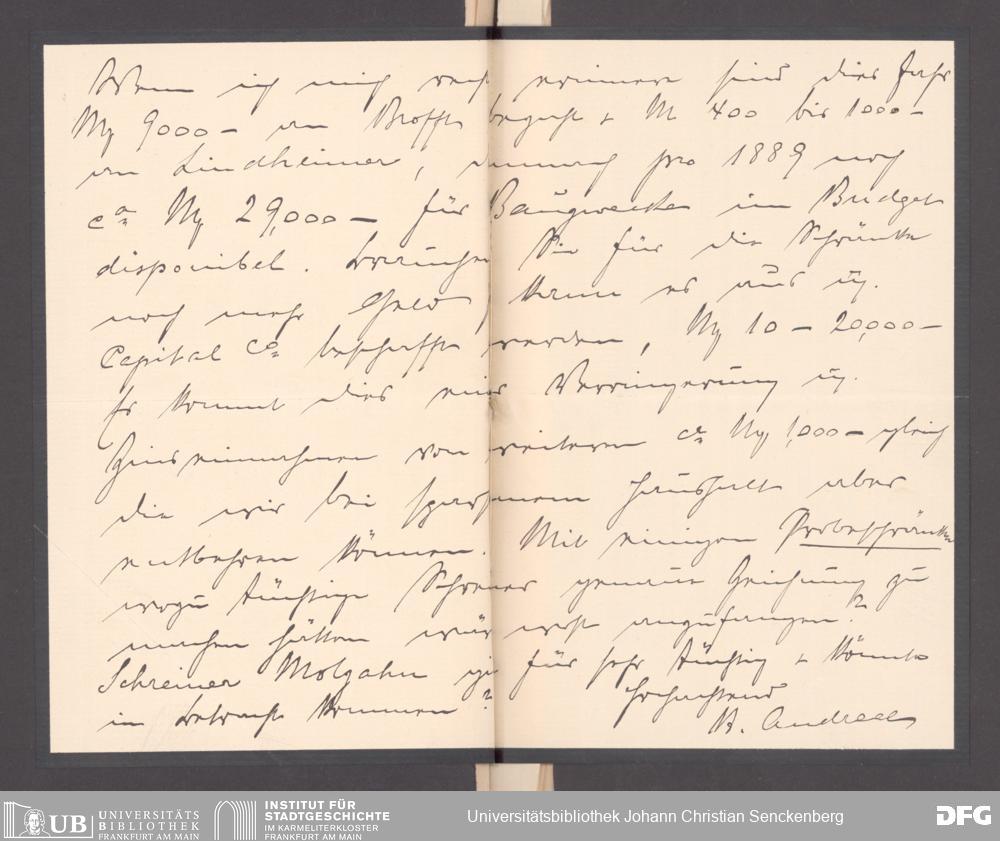 Wenn ich mich recht erinnere sind dies Jahr
M 9000 – an Brofft bezahlt + M 400 bis 1000 –
an Lindheimer, demnach pro 1889 noch
ca M 29,000 – für Bauzwecke im Budget
disponibel. Brauchen Sie für die Schränke
noch mehr Geld kann es aus
Capital Co beschafft werden, M 10 – 20,000 –
Es kommt dies einer Verringerung
Zinseinnahmen von weiteren ca M 1,000 – gleich
die wir bei sparsamem Haushalt aber
entbehren können. Mit einigen Probeschränken
wozu tüchtige Schreiner genaue Zeichnung zu
machen hätten wär wohl anzufangen?
Schreiner Molgahn für sehr tüchtig + könnte
in Betracht kommen?
Hochachtend
A. Andreae
UB UNIVERSITÄTS
BIBLIOTHEK
FRANKFURT AM MAIN
INSTITUT FÜR
STADTGESCHICHTE
IM KARMELITERKLOSTER
FRANKFURT AM MAIN
Universitätsbibliothek Johann Christian Senckenberg
DFG